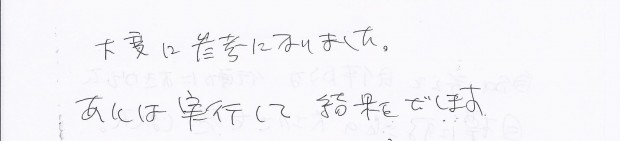 大変に参考になりました。
あとは実行して 結果をだします